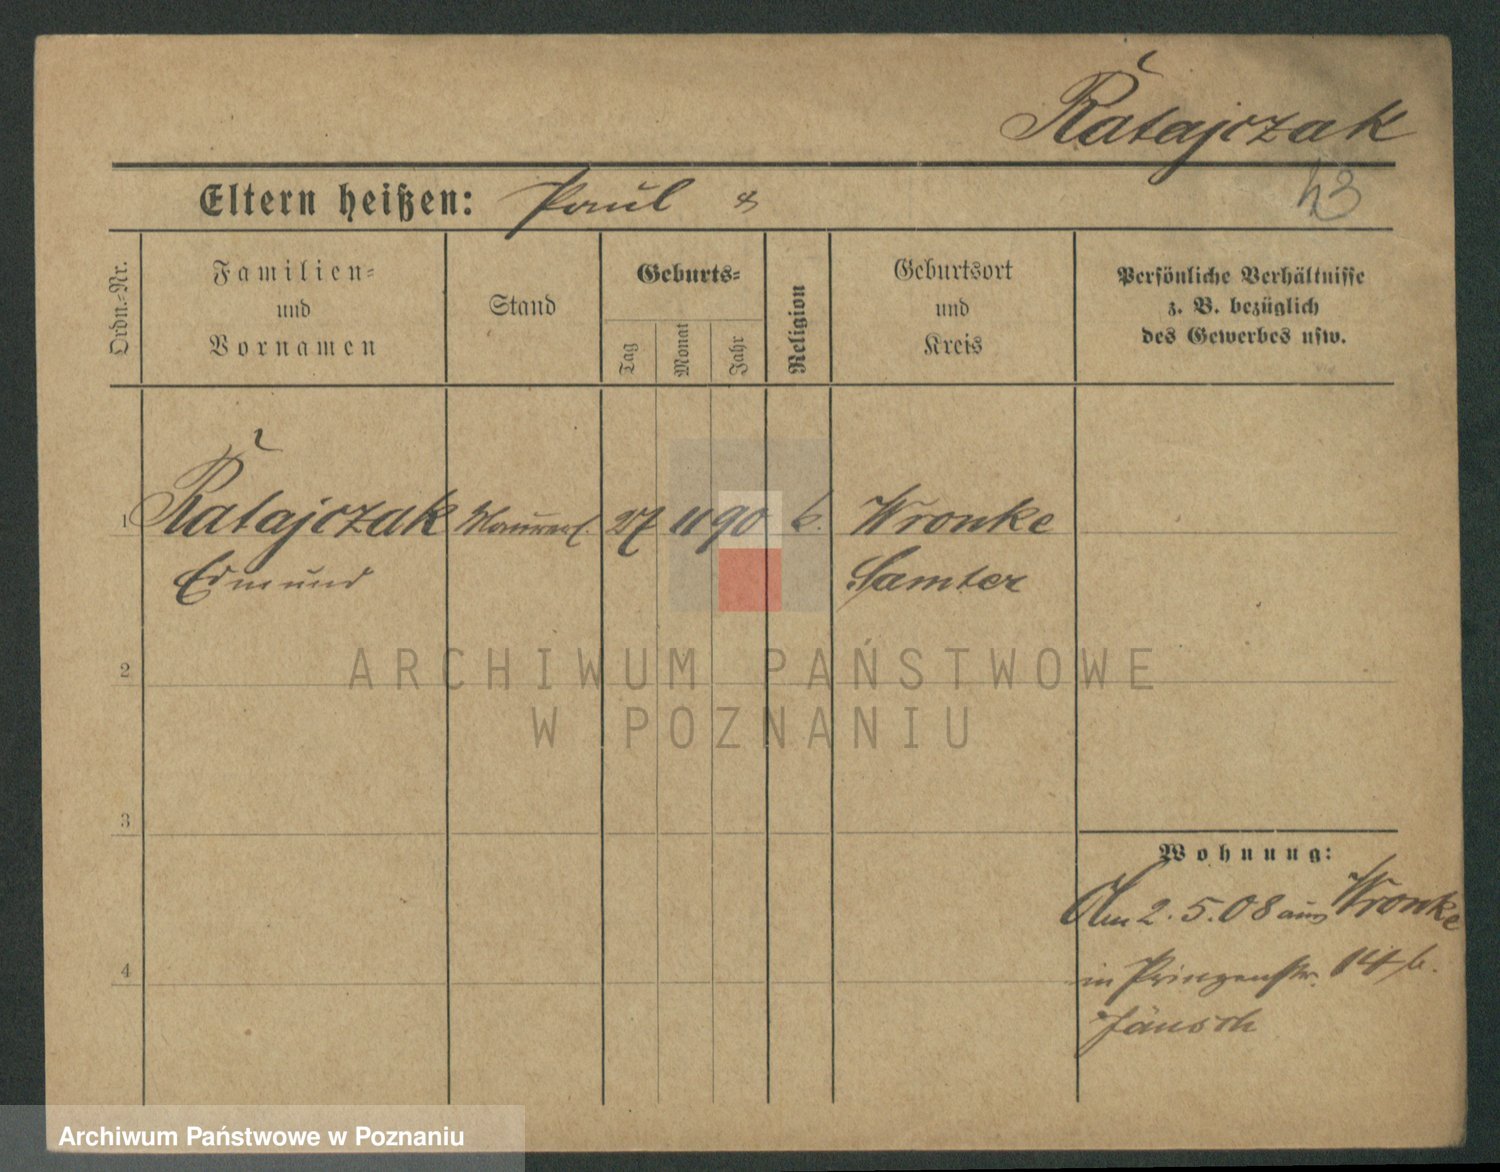 Ratajczak
Eltern heißen: Paul &
43
Ordn.-Nr.
Familien-
und
Vornamen
Stand
Geburts-
Tag
Monat
Jahr
Religion
Geburtsort
und
Kreis
Persönliche Verhältnisse
z. B. bezüglich
des Gewerbes usw.
1 Ratajczak Maurerl. 27 11 90 k. Wronke
Edmund Samter
ARCHIWUM PAŃSTWOWE
W POZNANIU
2
3
Wohnung:
Am 2.5.08 aus Wronke
4
in Prinzenstr. 14 b.
Jänsch
Archiwum Państwowe w Poznaniu